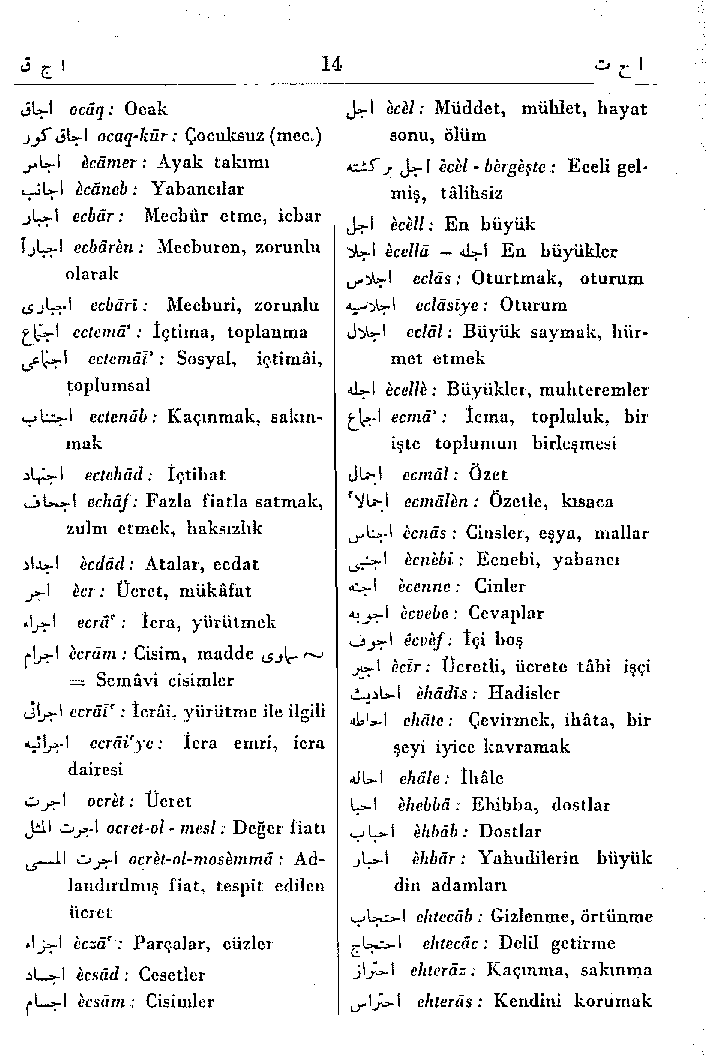 ا ج ق 14 ا ح ت
اجاق ocāq : Ocak
اجاق كور ocaq-kūr : Çocuksuz (mec.)
اجامر ècāmer : Ayak takımı
اجانب ècāneb : Yabancılar
اجبار ecbār : Mecbûr etme, icbar
اجباراً ecbārèn : Mecburen, zorunlu
olarak
اجباری ecbārī : Mecburi, zorunlu
اجتماع ectemā' : İçtima, toplanma
اجتماعی ectemāī' : Sosyal, içtimâi,
toplumsal
اجتناب ectenāb : Kaçınmak, sakın-
mak
اجتهاد ectehād : İçtihat
اجحاف echāf : Fazla fiatla satmak,
zulm etmek, haksızlık
اجداد ècdād : Atalar, ecdat
اجر ècr : Ücret, mükâfat
اجراء ecrā' : İcra, yürütmek
اجرام ècrām : Cisim, madde ~ سماوی
= Semâvi cisimler
اجرائی ecrāī' : İcrâi, yürütme ile ilgili
اجرائیه ecrāī'ye : İcra emri, icra
dairesi
اجرت ocrèt : Ücret
اجرت المثل ocret-ol - mesl : Değer fiatı
اجرت المسمی ocrèt-ol-mosèmmā : Ad-
landırılmış fiat, tespit edilen
ücret
اجزاء èczā' : Parçalar, cüzler
اجساد ècsād : Cesetler
اجسام ècsām : Cisimler
اجل ècèl : Müddet, mühlet, hayat
sonu, ölüm
اجل برگشته ècèl - bèrgèşte : Eceli gel-
miş, tâlihsiz
اجل ècèll : En büyük
اجلا ècellā — اجله En büyükler
اجلاس eclās : Oturtmak, oturum
اجلاسیه eclāsiye : Oturum
اجلال eclāl : Büyük saymak, hür-
met etmek
اجله ècellè : Büyükler, muhteremler
اجماع ecmā' : İcma, topluluk, bir
işte toplumun birleşmesi
اجمال ecmāl : Özet
اجمالاً ecmālèn : Özetle, kısaca
اجناس ècnās : Cinsler, eşya, mallar
اجنبی ècnèbī : Ecnebi, yabancı
اجنه ècenne : Cinler
اجوبه ècvebe : Cevaplar
اجوف écvèf : İçi boş
اجیر ècīr : Ücretli, ücrete tâbi işçi
احادیث èhādīs : Hadisler
احاطه ehāte : Çevirmek, ihâta, bir
şeyi iyice kavramak
احاله ehāle : İhâle
احبا èhebbā : Ehibba, dostlar
احباب èhbāb : Dostlar
احبار èhbār : Yahudilerin büyük
din adamları
احتجاب ehtecāb : Gizlenme, örtünme
احتجاج ehtecāc : Delil getirme
احتراز ehterāz : Kaçınma, sakınma
احتراس ehterās : Kendini korumak